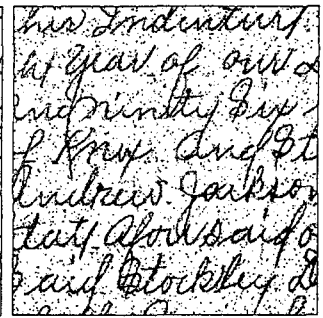 his Indenture
year of our
and ninety Six
of Knox and St
Andrew Jackson
aforesaid
said Stockley D